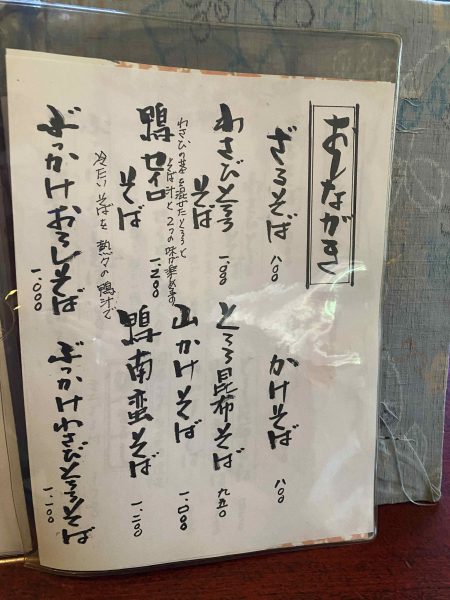 おしながき
ざるそば 八〇〇
かけそば 八〇〇
わさびとろろそば
わさびの茎を混ぜたとろろと
そば汁と2つの味が楽しめます
とろろ昆布そば 九五〇
山かけそば
鴨セイロそば 一、二〇〇
冷たいそばを熱々の鴨汁で
鴨南蛮そば 一、二〇〇
ぶっかけおろしそば 一、〇〇〇
ぶっかけわさびとろろそば 一、一〇〇